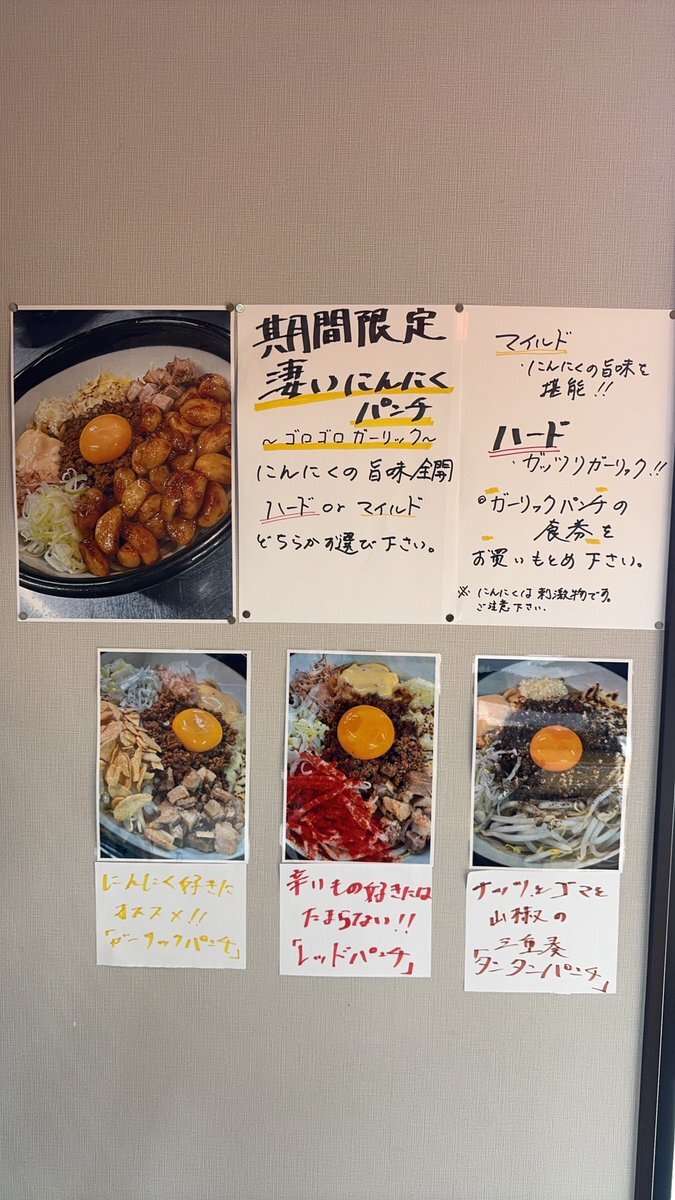 期間限定
凄いにんにく
パンチ
～ゴロゴロガーリック～
にんにくの旨味全開
ハード or マイルド
どちらかお選び下さい。
マイルド
・にんにくの旨味を
堪能!!
ハード
・ガッツリガーリック!!
◎ガーリックパンチの
食券を
お買いもとめ下さい。
※にんにくは刺激物です。
ご注意下さい。
にんにく好きに
オススメ!!
「ガーリックパンチ」
辛いもの好きには
たまらない!!
「レッドパンチ」
ナッツとゴマと
山椒の
三重奏
「タンタンパンチ」